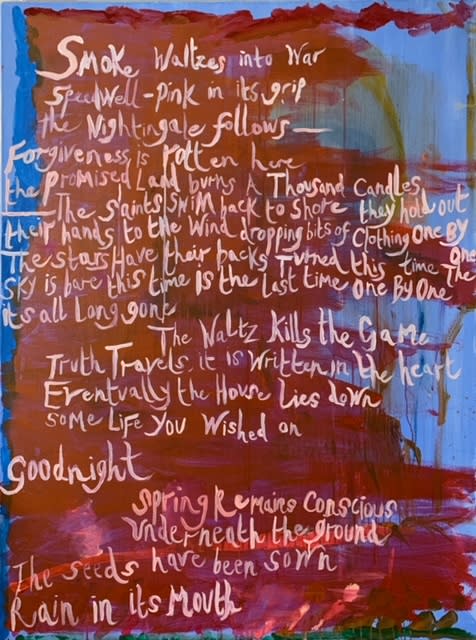 Smoke Waltzes into War
Speedwell-Pink in its grip
the Nightingale follows —
Forgiveness is rotten here
the Promised Land burns A Thousand Candles
— The saints swim back to shore they hold out
their hands to the Wind dropping bits of clothing One By One
The stars Have their backs Turned this time The
sky is bare this time is the last time One By One
its all long gone
The Waltz Kills the Game
Truth Travels it is written in the heart
Eventually the House Lies down
some Life You Wished on
Goodnight
Spring Remains Conscious
Underneath the ground
The seeds have been sown
Rain in its Mouth